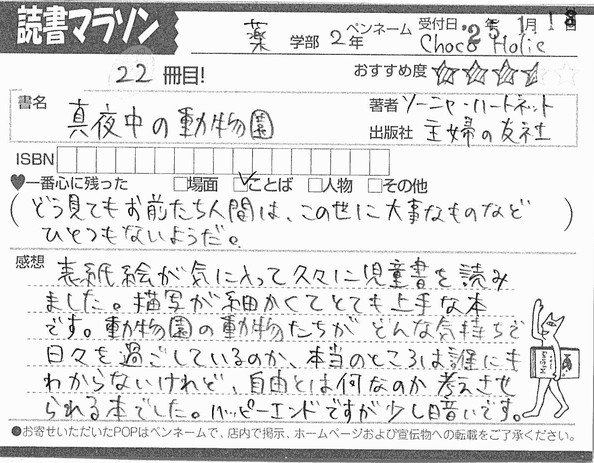 読書マラソン
薬 学部 2年 ペンネーム Choco Holic 受付日 '25年 1月 18日
22 冊目! おすすめ度
書名 真夜中の動物園 著者 ソーニャ・ハートネット
出版社 主婦の友社
ISBN
♥一番心に残った □場面 ☑ことば □人物 □その他
(どう見てもお前たち人間は、この世に大事なものなど
ひとつもないようだ。)
感想 表紙絵が気に入って久々に児童書を読み
ました。描写が細かくてとても上手な本
です。動物園の動物たちがどんな気持ちで
日々を過ごしているのか、本当のところは誰にも
わからないけれど、自由とは何なのか考えさせ
られる本でした。ハッピーエンドですが少し暗いです。
●お寄せいただいたPOPはペンネームで、店内で掲示、ホームページおよび宣伝物への転載をご了承ください。